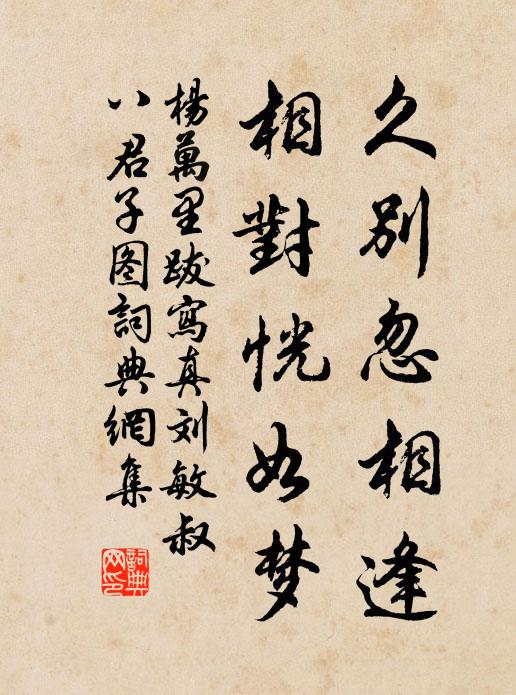 久别忽相逢
相對恍如梦
楊萬里跋寫真刘敏叔
八君子图詞典網集
詞典网印